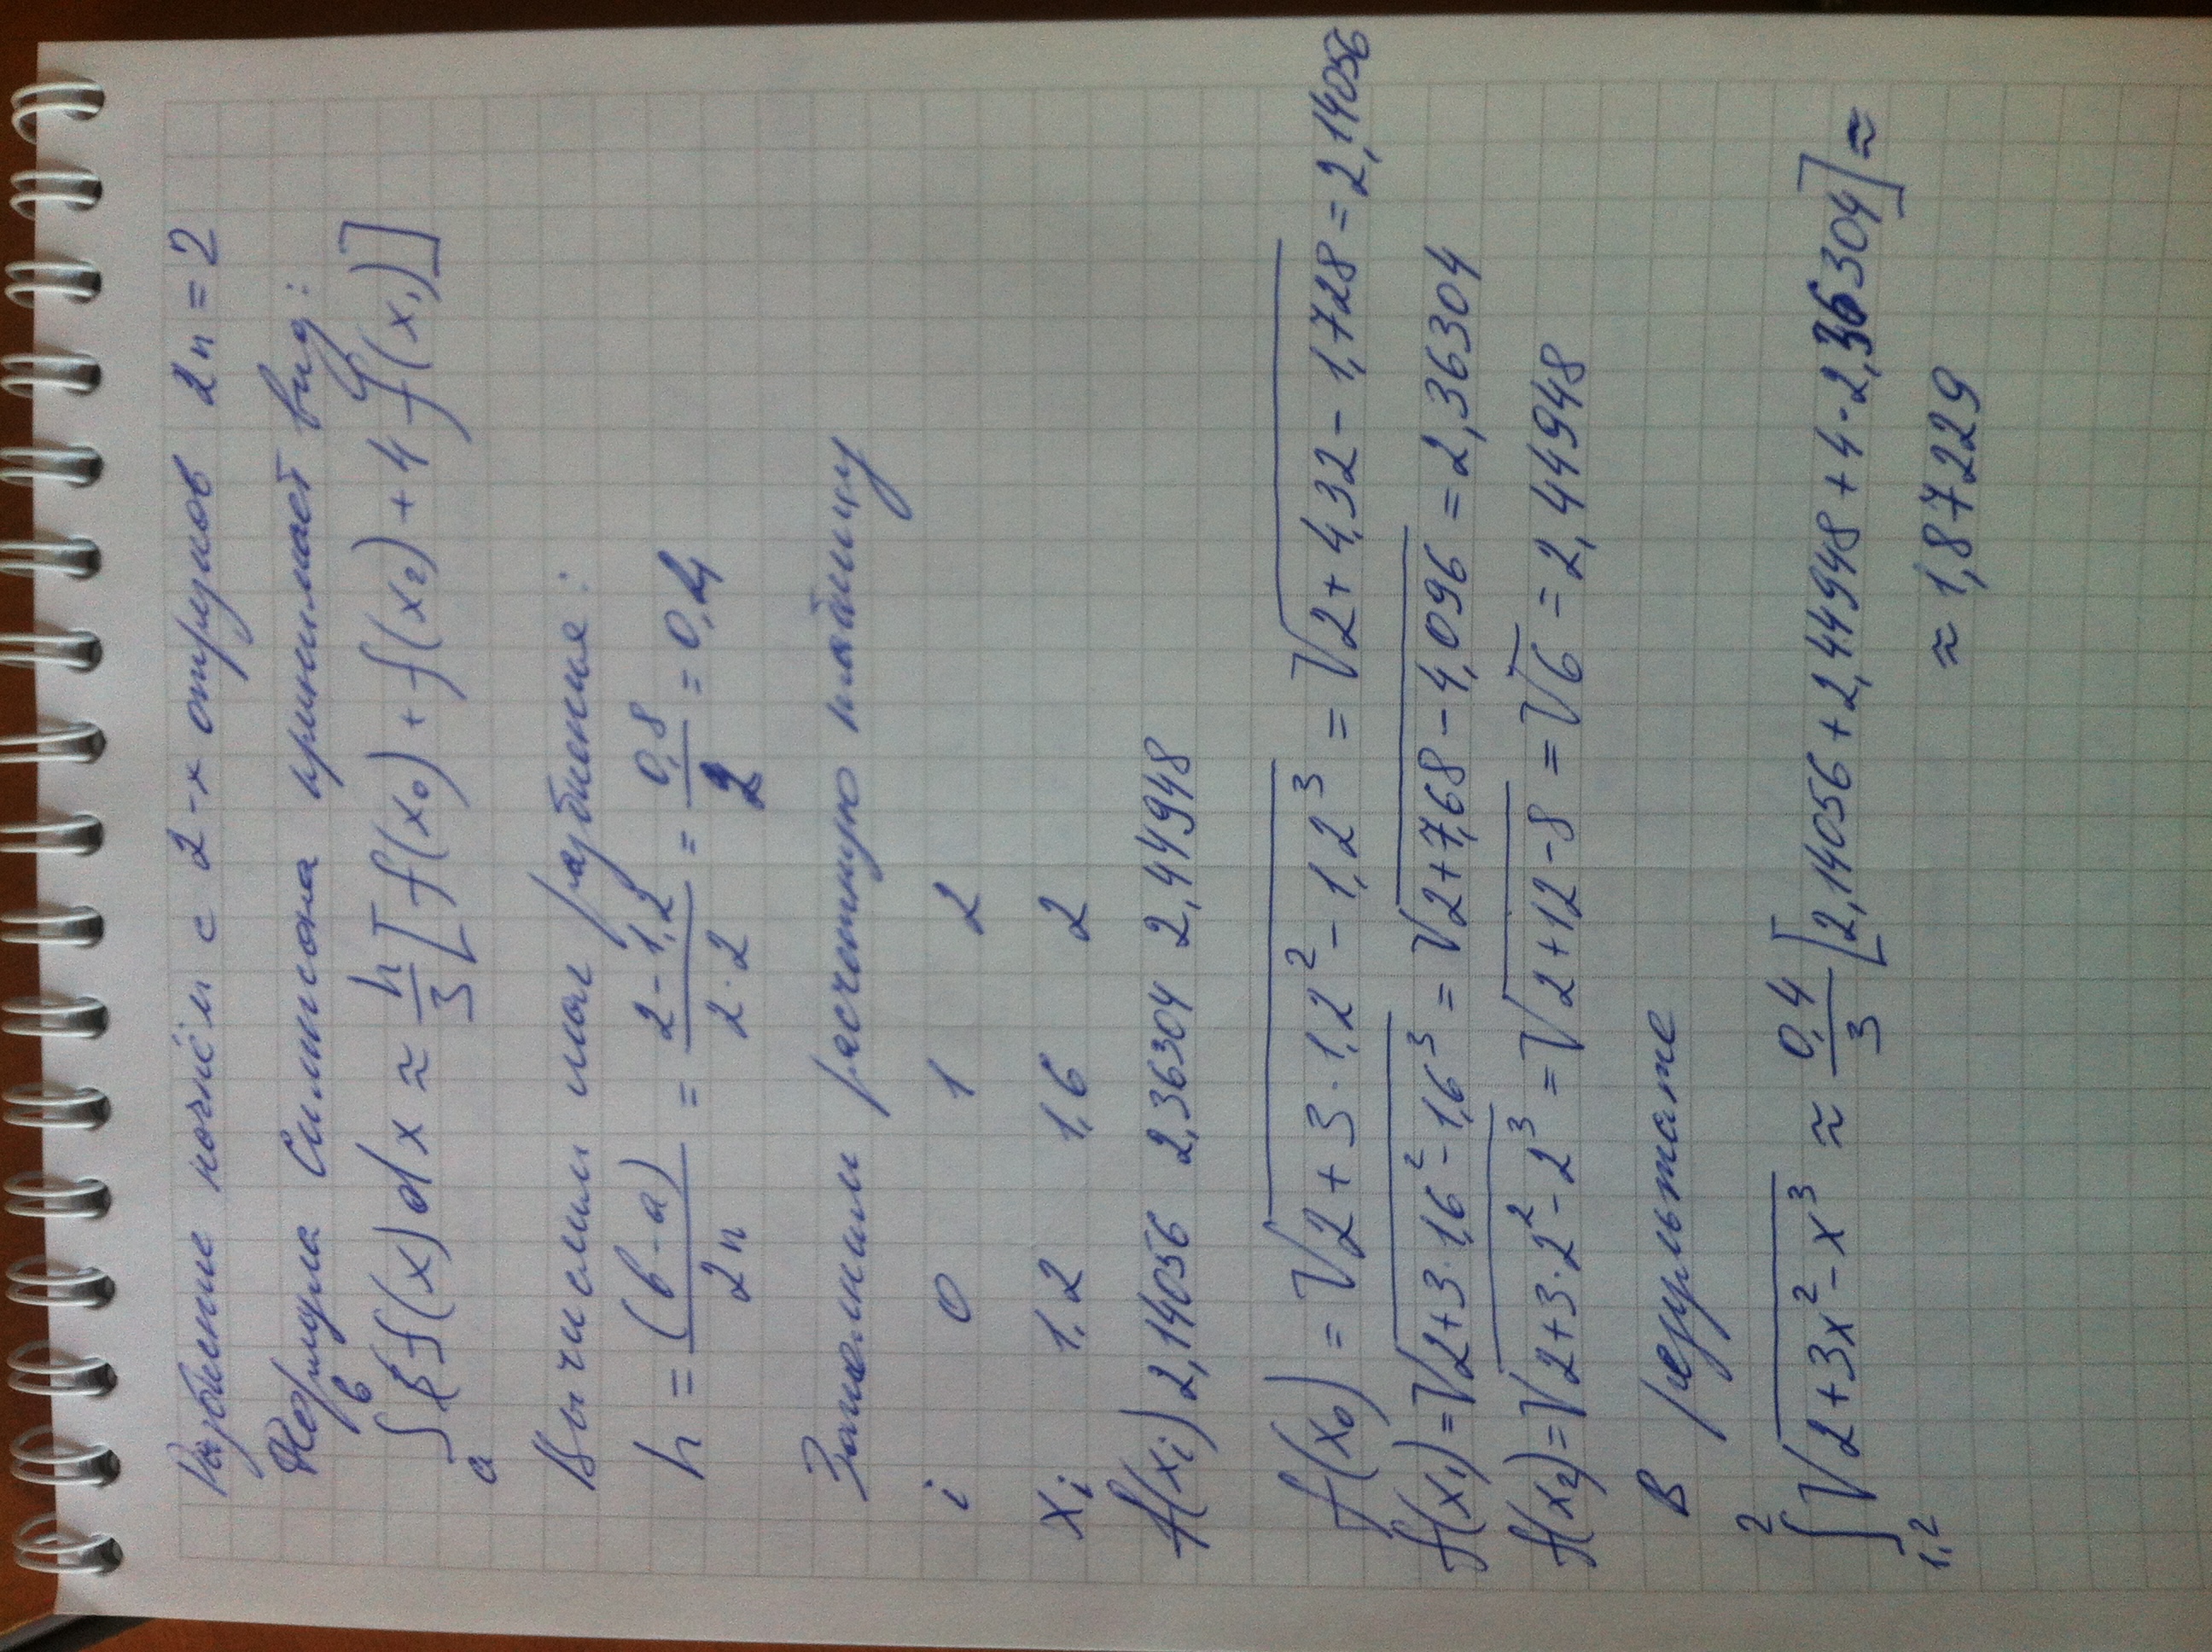 Разбиение начнём с 2-х отрезков 2n = 2
Формула Симпсона принимает вид:
∫ₐᵇ f(x)dx ≈ h/3 [f(x₀) + f(x₂) + 4 f(x₁)]
Вычислим шаг разбиения:
h = (b-a)/2n = 2-1,2/2·2 = 0,8/2 = 0,4
Заполним расчетную таблицу
i 0 1 2
xᵢ 1,2 1,6 2
f(xᵢ) 2,14056 2,36304 2,44948
f(x₀) = √2+3·1,2²-1,2³ = √2+4,32-1,728 = 2,14056
f(x₁) = √2+3·1,6²-1,6³ = √2+7,68-4,096 = 2,36304
f(x₂) = √2+3·2²-2³ = √2+12-8 = √6 = 2,44948
В результате
∫₁,₂² √2+3x²-x³ ≈ 0,4/3 [2,14056+2,44948+4·2,36304] ≈
≈ 1,87229